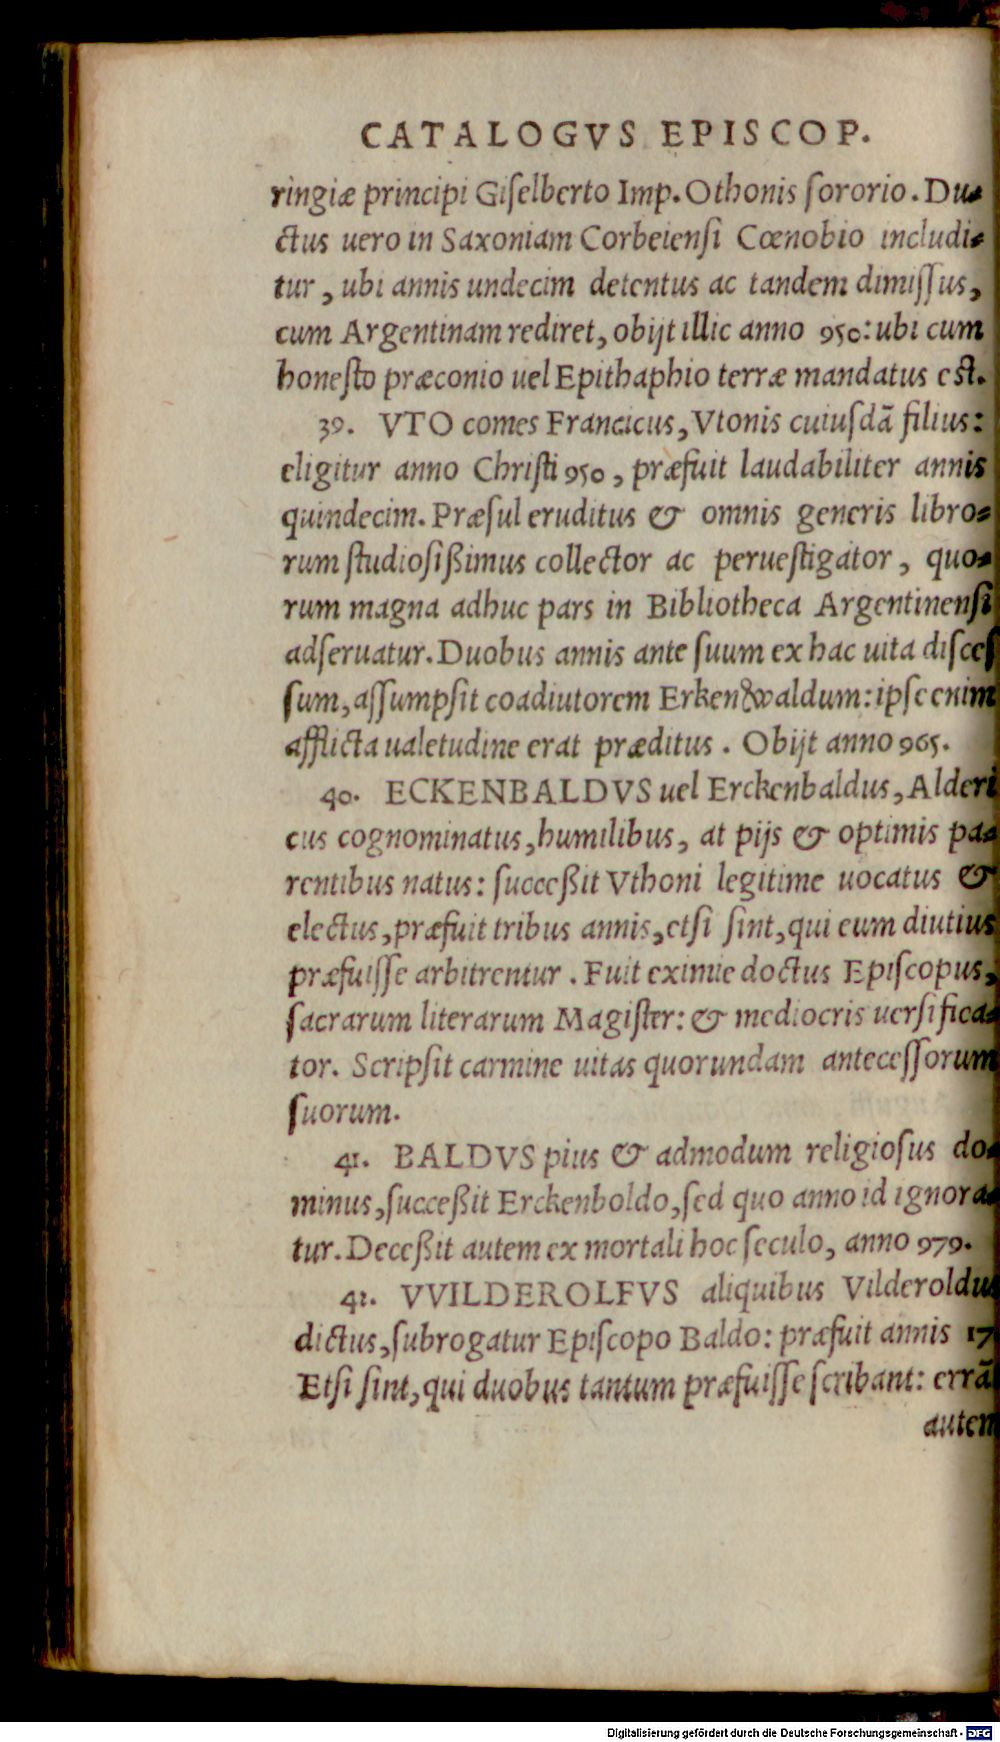 CATALOGVS EPISCOP.
ringiæ principi Giſelberto Imp. Othonis ſororio. Du-
ctus uero in Saxoniam Corbeienſi Cœnobio includi-
tur, ubi annis undecim detentus ac tandem dimiſſus,
cum Argentinam rediret, obijt illic anno 950: ubi cum
honeſto præconio uel Epithaphio terræ mandatus eſt.
39. VTO comes Francicus, Vtonis cuiuſdã filius:
eligitur anno Chriſti 950, præfuit laudabiliter annis
quindecim. Præſul eruditus & omnis generis libro-
rum ſtudioſißimus collector ac perueſtigator, quo-
rum magna adhuc pars in Bibliotheca Argentinenſi
adſeruatur. Duobus annis ante ſuum ex hac uita diſceſ
ſum, aſſumpſit coadiutorem Erkenwaldum: ipſe enim
afflicta ualetudine erat præditus. Obijt anno 965.
40. ECKENBALDVS uel Erckenbaldus, Alderi
cus cognominatus, humilibus, at pijs & optimis pa-
rentibus natus: ſucceßit Vthoni legitime uocatus &
electus, præfuit tribus annis, etſi ſint, qui eum diutius
præfuiſſe arbitrentur. Fuit eximie doctus Epiſcopus,
ſacrarum literarum Magiſter: & mediocris uerſifica-
tor. Scripſit carmine uitas quorundam anteceſſorum
ſuorum.
41. BALDVS pius & admodum religioſus do-
minus, ſucceßit Erckenboldo, ſed quo anno id ignora-
tur. Deceßit autem ex mortali hoc ſeculo, anno 979.
41. VVILDEROLFVS aliquibus Vilderoldu
dictus, ſubrogatur Epiſcopo Baldo: præfuit annis 17
Etſi ſint, qui duobus tantum præfuiſſe ſcribant: errã
autem
Digitalisierung gefördert durch die Deutsche Forschungsgemeinschaft - DFG